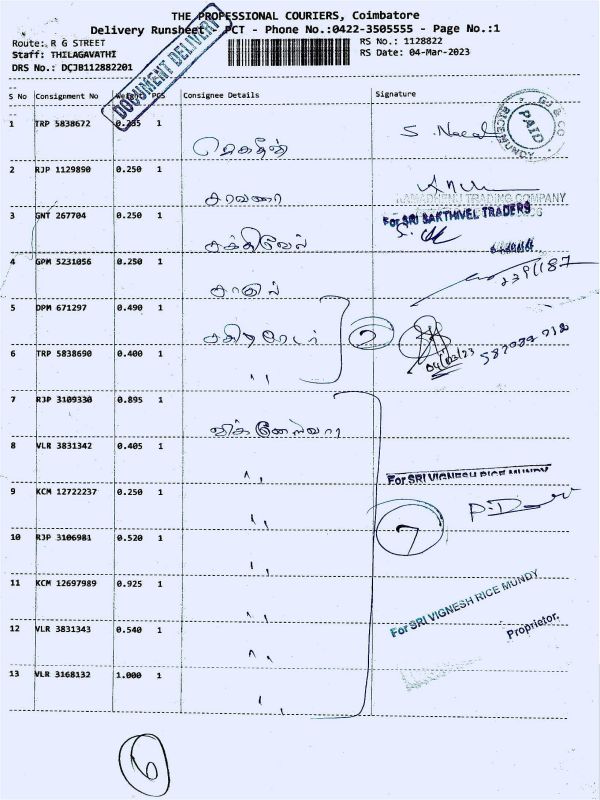 THE PROFESSIONAL COURIERS, Coimbatore
Delivery Runsheet PCT - Phone No.:0422-3505555 - Page No.:1
Route: R G STREET
RS No.: 1128822
Staff: THILAGAVATHI
RS Date: 04-Mar-2023
DRS No.: DCJB112882201
DOCUMENT DELIVERY
S No Consignment No Weight PCS Consignee Details Signature
1 TRP 5838672 0.235 1
GJ & CO
PAID
RICE MUNDY
2 RJP 1129890 0.250 1 சரவணா
TRADING COMPANY
3 GNT 267704 0.250 1 சக்திவேல்
For SRI SAKTHIVEL TRADERS
4 GPM 5231056 0.250 1
5 DPM 671297 0.490 1
2
04/03/23
6 TRP 5838690 0.400 1 "
7 RJP 3109330 0.895 1 விக்னேஸ்வரா
8 VLR 3831342 0.405 1 "
For SRI VIGNESH RICE MUNDY
9 KCM 12722237 0.250 1 "
7
10 RJP 3106981 0.520 1 "
11 KCM 12697989 0.925 1 "
For SRI VIGNESH RICE MUNDY
12 VLR 3831343 0.540 1 "
Proprietor.
13 VLR 3168132 1.000 1 "
6